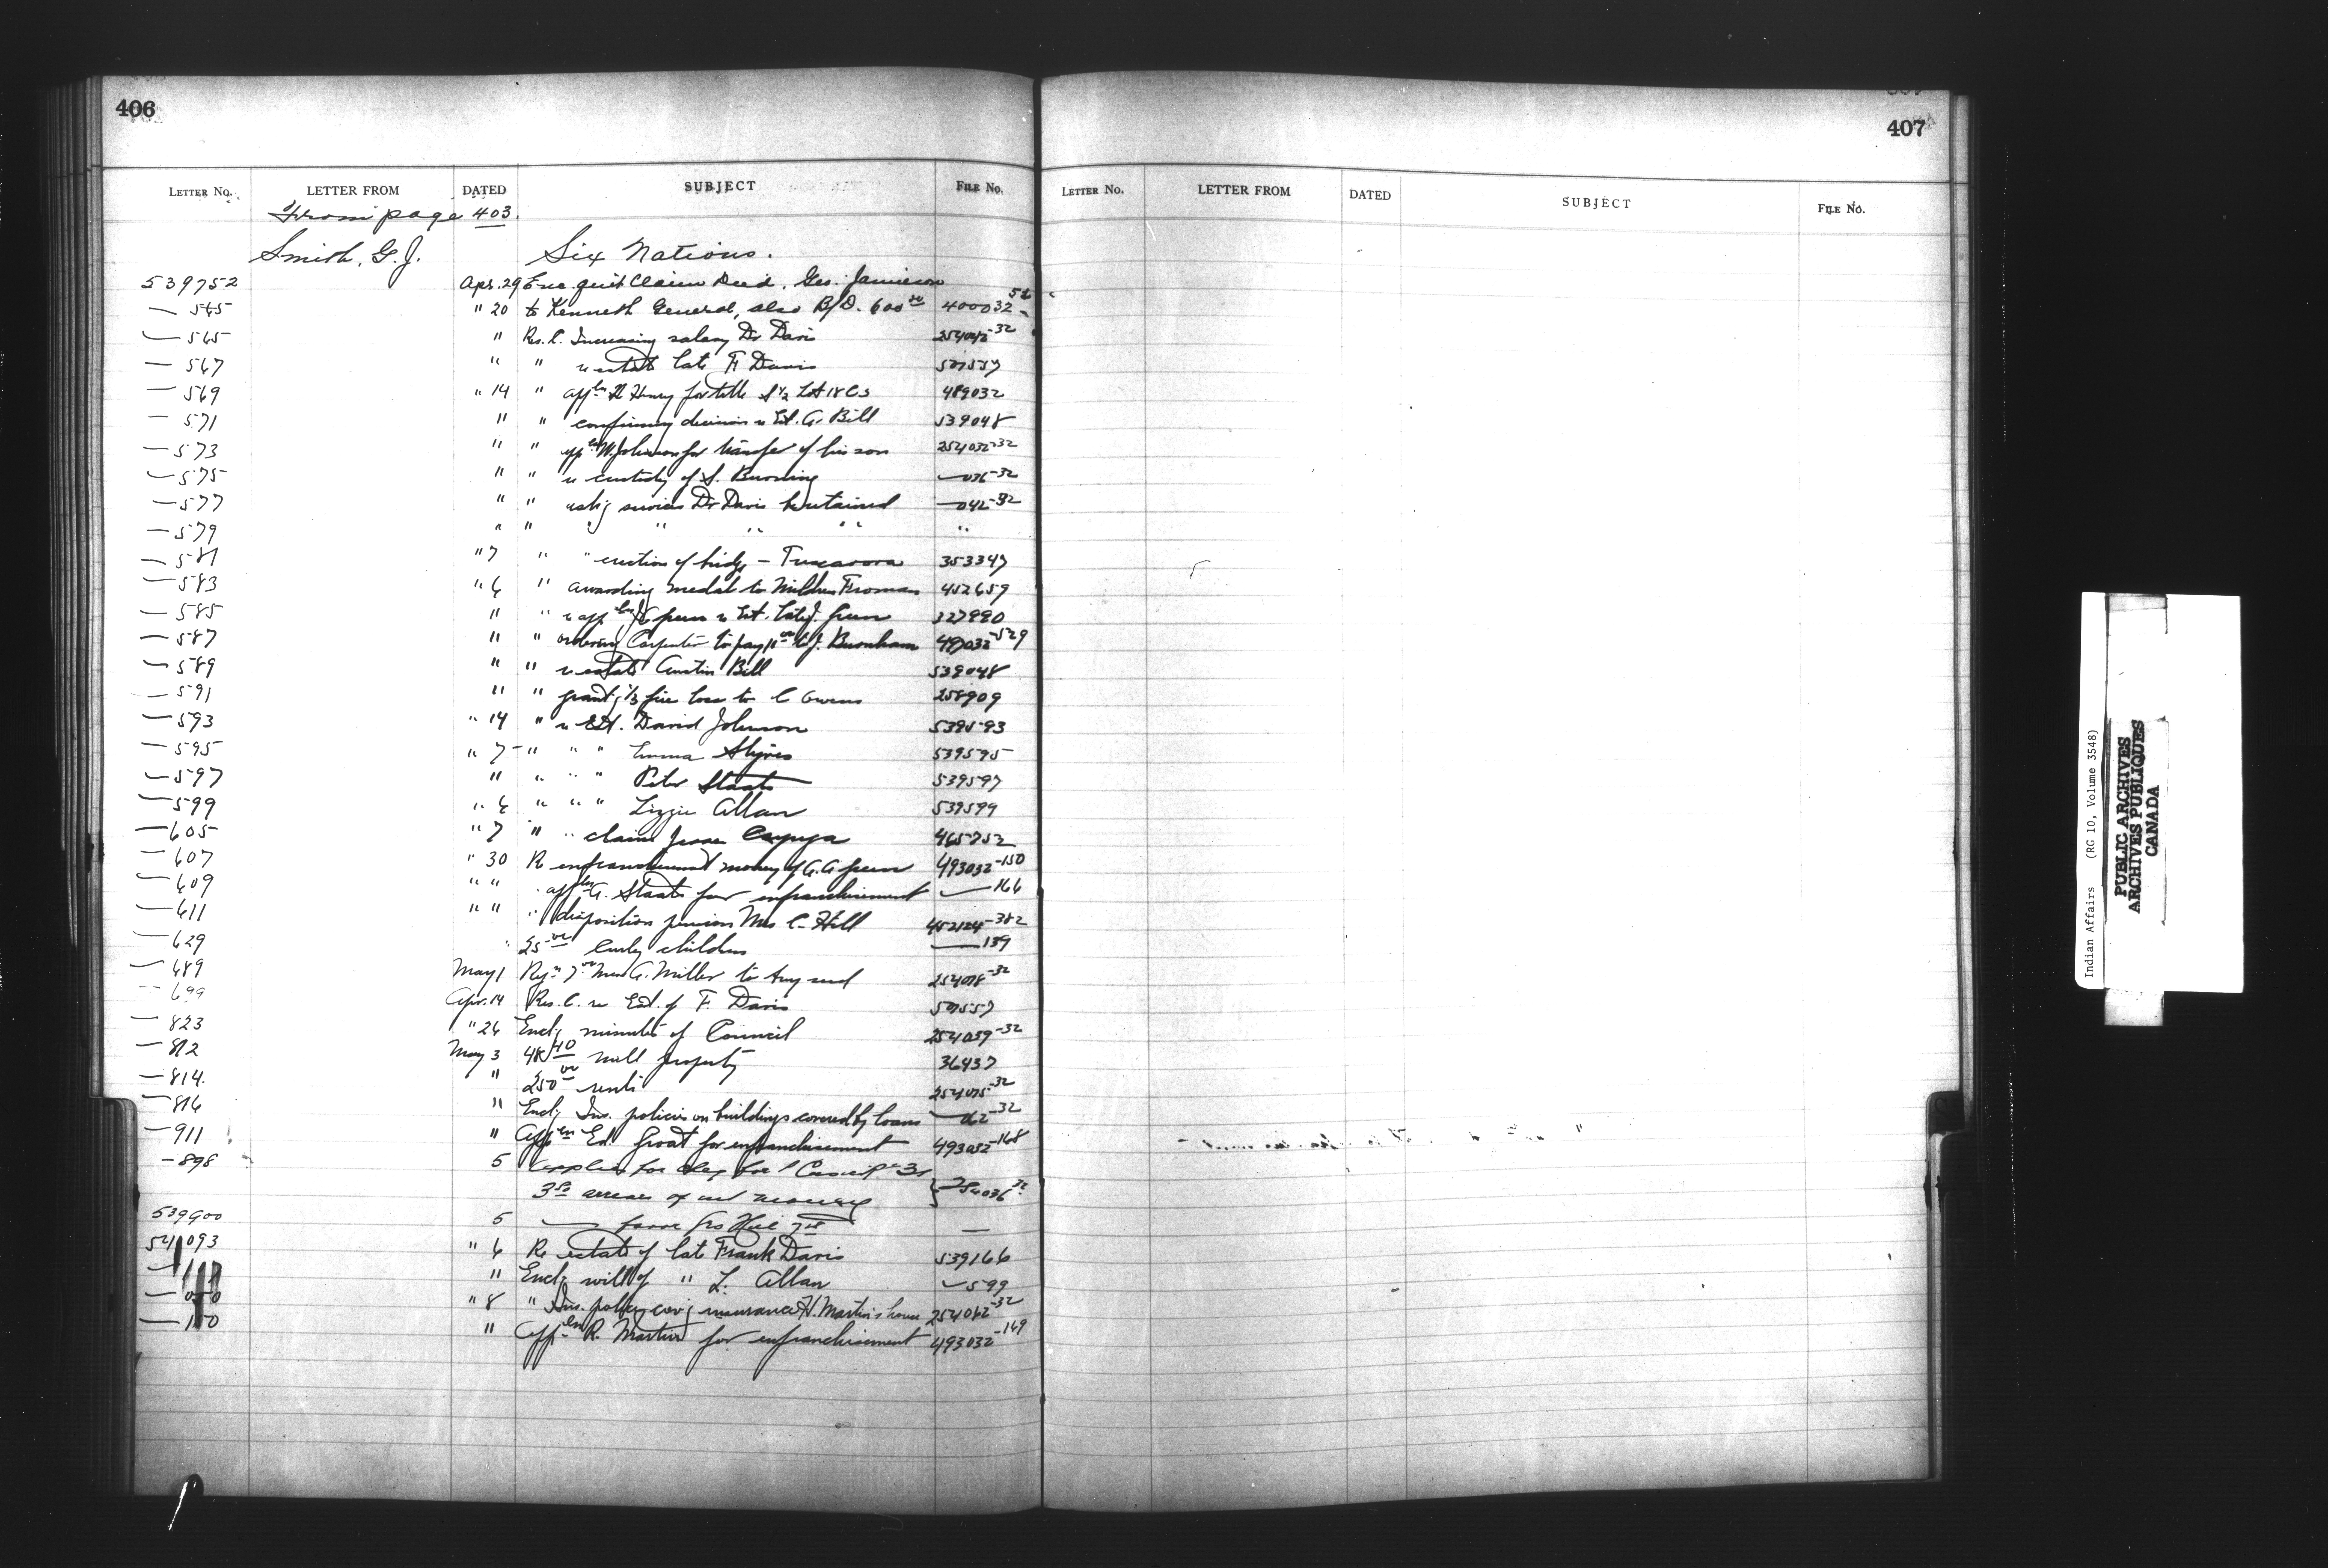 406
LETTER NO. LETTER FROM DATED SUBJECT FILE NO.
From page 403.
Smith, G. J. Six Nations.
539752 Apr. 29 Enc. quit Claim Deed, Geo. Jamieson
— 545 " 20 to Kenneth General, also B/D. 600 00 400032
— 565 " Res. C. Increasing salary Dr Davis 254042-32
— 567 " " re estate late F. Davis 507557
— 569 " 14 " Henry for title S ½ Lot 18 C 3 489032
— 571 " " confirming division re Est. A. Bill 539048
— 573 " " W. Johnson for transfer of his son 254032-32
— 575 " " re custody of S. Burning — 036-32
— 577 " " ask'g services Dr Davis be retained — 042-32
— 579 " " " " " " "
— 581 " 7 " " erection of bridge — Tuscarora 353347
— 583 " 6 " awarding medal to Mildred Froman 452659
— 585 " " re Green re Est. late J. Green 327990
— 587 " " ordering Carpenter to pay 11 00 to J. Burnham 493032-529
— 589 " " re estate Austin Bill 539048
— 591 " " grant'g ⅓ fire loss to C Owens 258909
— 593 " 14 " re Est. David Johnson 539593
— 595 " 7 " " " Emma Styres 539595
— 597 " " " " Peter Staats 539597
— 599 " 6 " " " Lizzie Allan 539599
— 605 " 7 " " claim Jesse Cayuga 465752
— 607 " 30 Re enfranchisement money of A. A Green 493032-150
— 609 " " " appln A. Staats for enfranchisement — 166
— 611 " " " disposition pension Mrs C. Hill 452124-382
— 629 " 25 00 Curley children — 139
— 689 May 1 Mrs A. Miller to 254018-32
— 699 Apr. 14 Res. C. re Est. of F. Davis 507557
— 823 " 26 Encl'g minutes of Council 254039-32
— 812 May 3 48 40 mill property 36437
— 814. " 250 00 rents 254015-32
— 816 " Encl'g Ins. policies on buildings covered by loans — 062-32
— 911 " Appln Ed. Groat for enfranchisement 493032-168
— 898 5 applies for chq for
3 50 arrears of int money 254036-32
539900 5 — favor Geo Hill —
541093 " 6 Re estate of late Frank Davis 539166
" Encl'g will of " L. Allan — 599
" 8 " Ins. policy cov'g insurance H. Martin's house 254062-32
" Appln R. Martin for enfranchisement 493032-169
407
LETTER NO. LETTER FROM DATED SUBJECT FILE NO.
Indian Affairs (RG 10, Volume 3548)
PUBLIC ARCHIVES
ARCHIVES PUBLIQUES
CANADA